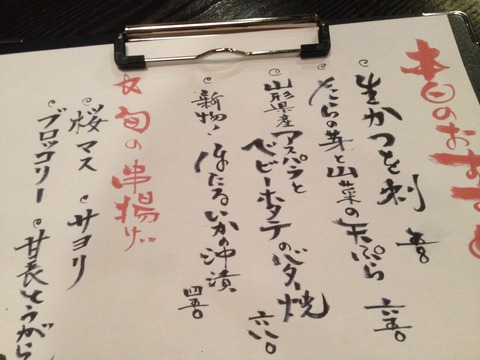 本日のおすすめ
生かつを刺 吾〇
たらの芽と山菜の天ぷら 六五〇
山形県産アスパラと
ベビーホタテのバター焼 六八〇
新物！ほたるいかの沖漬 四五〇
☆旬の串揚げ
桜マス サヨリ
ブロッコリー 甘長とうがら